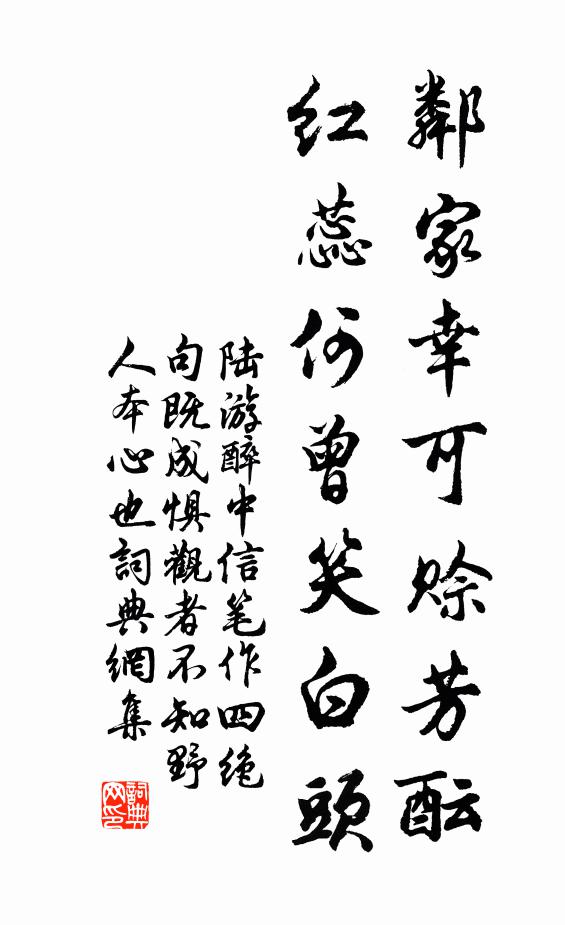 鄰家幸可賒芳酝
红蕊何曾笑白頭
陆游醉中信笔作四绝
句既成惧觀者不知野
人本心也詞典網集
詞典
网印